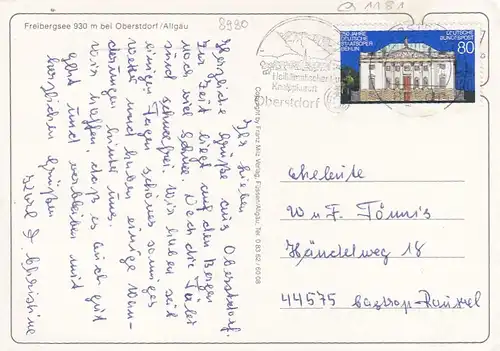 Freibergsee 930 m bei Oberstdorf/Allgäu
8980
a 1181
250 JAHRE
DEUTSCHE
STAATSOPER
BERLIN
DEUTSCHE
BUNDESPOST
80
Heilklimatischer
Kneippkurort
Oberstdorf
Copyright by Franz Milz Verlag, Füssen/Allgäu, Tel. 0 83 62 / 60 08
Ihr Lieben
Herzliche Grüße aus Oberstdorf.
Zur Zeit liegt auf den Bergen
viel Schnee. Doch die Täler
sind schneefrei. Wir haben seit
einigen Tagen schönes sonniges
Wetter und haben einige Wan-
derungen hinter uns.
Wir hoffen, daß es Euch gut
geht und verbleiben mit
herzlichen Grüßen
Eure & Christine
Eheleute
W u F. Tönnis
Händelweg 18
44575 Castrop-Rauxel